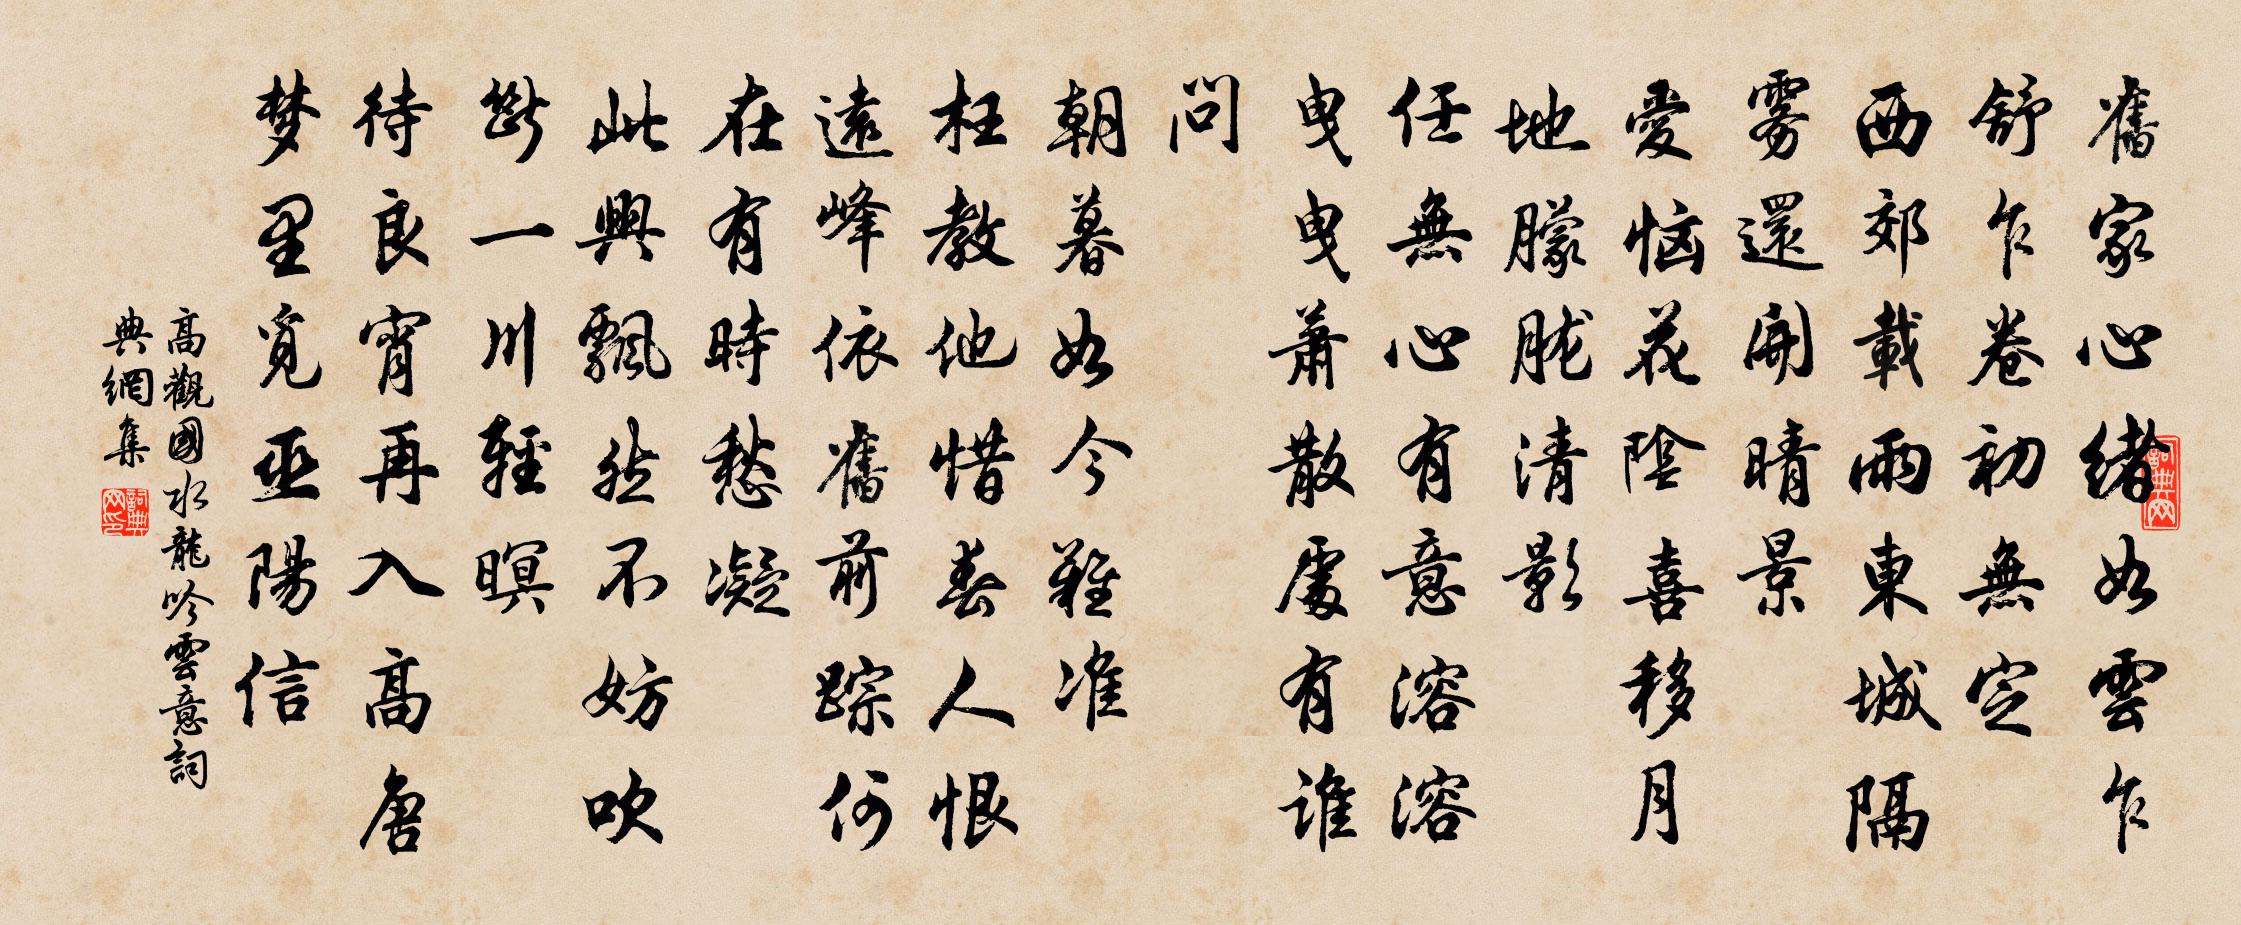 舊家心緒如雲乍
舒乍卷初無定
西郊載雨東城隔
雾還開晴景
愛恼花陰喜移月
地朦胧清影
任無心有意溶溶
曳曳蕭散處有谁
問
朝暮如今難准
枉教他惜春人恨
遠峰依舊前踪何
在有時愁凝
此興飄然不妨吹
斷一川輕暝
待良宵再入高唐
梦里觅巫陽信
高觀國水龍吟雲意詞
典網集
詞典网
詞典网印